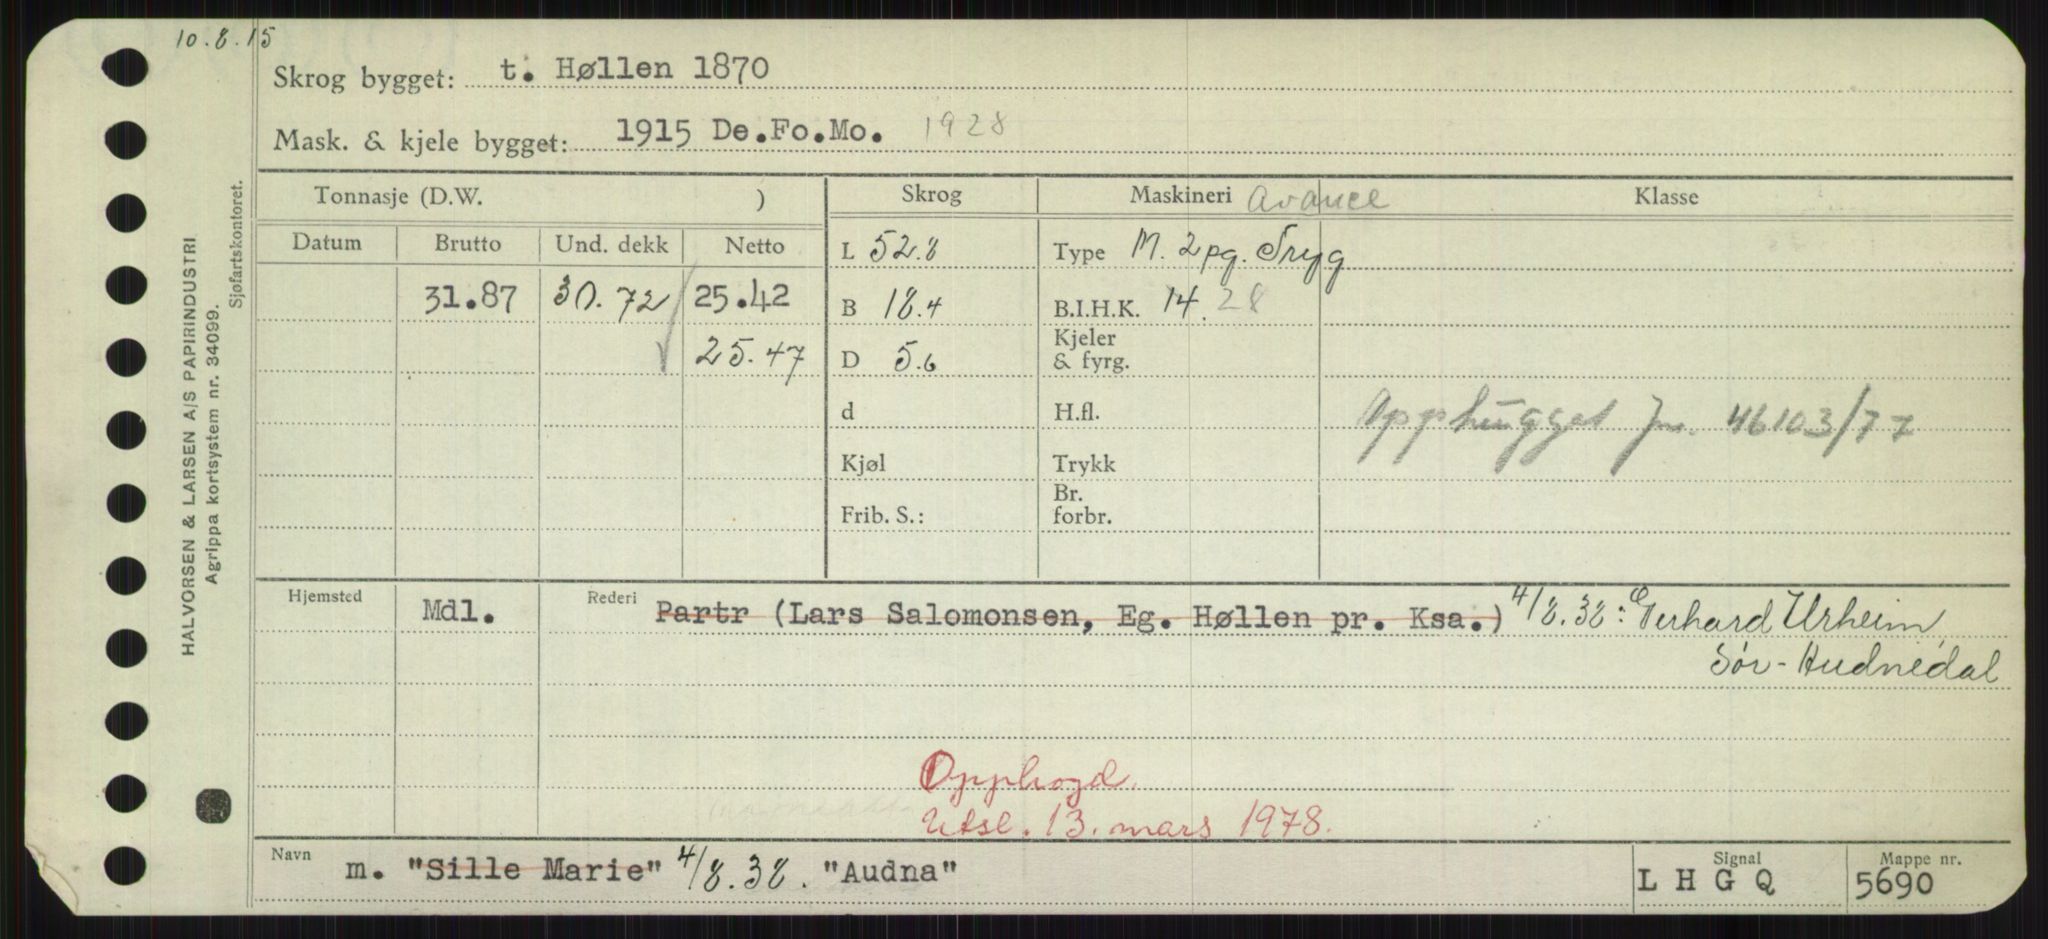 10.8.15
Skrog bygget: t. Høllen 1870
Mask. & kjele bygget: 1915 De.Fo.Mo. 1928
Tonnasje (D.W. ) Skrog Maskineri Avance Klasse
Datum Brutto Und. dekk Netto L 52.8 Type M. 2 pg. Tryg
31.87 30.72 25.42 B 18.4 B.I.H.K. 14. 28
Kjeler
25.47 D 5.6 & fyrg.
d H.fl. Opphugget jnr. 46103/77
Kjøl Trykk
Br.
Frib. S.: forbr.
Hjemsted Mdl. Rederi Partr (Lars Salomonsen, Eg. Høllen pr. Ksa.) 4/8.38: Gerhard Urheim,
Sør-Audnedal
Opphogd.
Utsl. 13. mars 1978.
Navn m. "Sille Marie" 4/8.38. "Audna" Signal L H G Q Mappe nr. 5690
HALVORSEN & LARSEN A/S PAPIRINDUSTRI
Agrippa kortsystem nr. 34099.
Sjøfartskontoret.